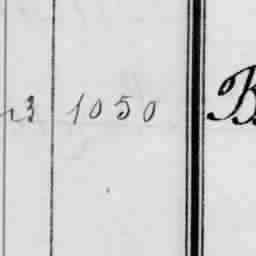 13 1050 B